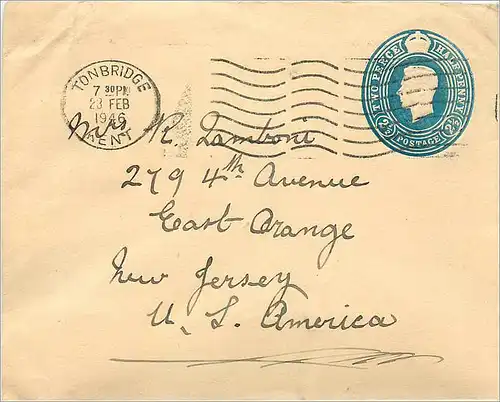 TONBRIDGE
7 30 PM
23 FEB
1946
KENT
TWO PENCE HALF PENNY
2½ POSTAGE 2½
Mrs R. Zamboni
279 4th Avenue
East Orange
New Jersey
U. S. America